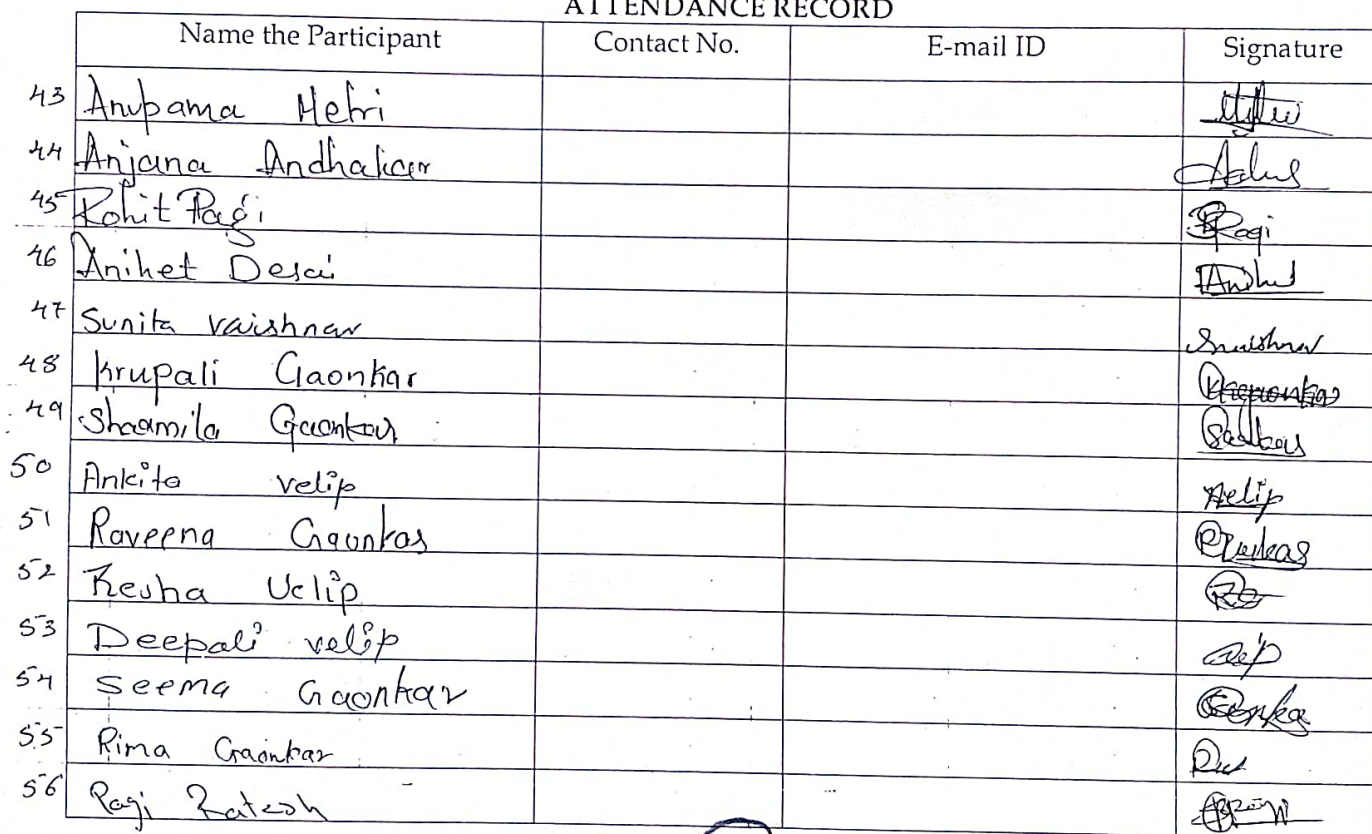 ATTENDANCE RECORD
Name the Participant Contact No. E-mail ID Signature
43 Anupama Hetri
44 Anjana Andhakar
45 Rohit Pagi Pagi
46 Aniket Desai
47 Sunita vaishnav
48 krupali Gaonkar
49 Shaamila Gaonkar
50 Ankita velip
51 Raveena Gaonkar
52 Resha Velip
53 Deepali velip
54 seema Gaonkar
55 Rima Gaonkar
56 Pagi Ratesh